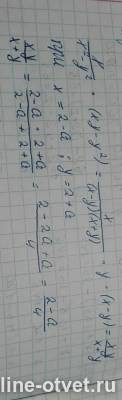 x/(x²-y²) · (xy-y²) = x/((x-y)(x+y)) · y · (x-y) = xy/(x+y)
при x = 2-a ; y = 2+a
xy/(x+y) = (2-a · 2+a)/(2-a+2+a) = (2-2a+a)/4 = (2-a)/4
line-otvet.ru